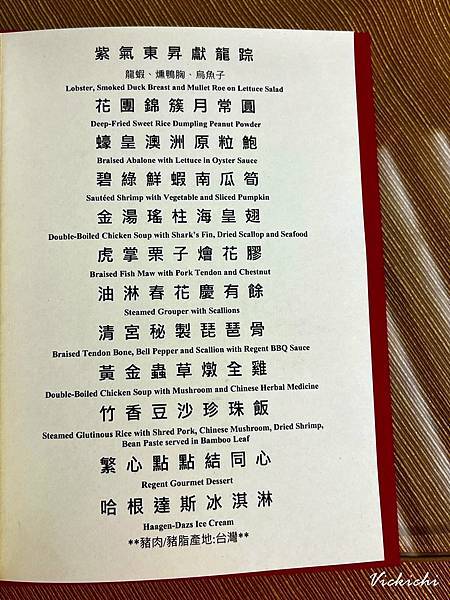 紫氣東昇獻龍踪
龍蝦、燻鴨胸、烏魚子
Lobster, Smoked Duck Breast and Mullet Roe on Lettuce Salad
花團錦簇月常圓
Deep-Fried Sweet Rice Dumpling Peanut Powder
蠔皇澳洲原粒鮑
Braised Abalone with Lettuce in Oyster Sauce
碧綠鮮蝦南瓜筍
Sautéed Shrimp with Vegetable and Sliced Pumpkin
金湯瑤柱海皇翅
Double-Boiled Chicken Soup with Shark's Fin, Dried Scallop and Seafood
虎掌栗子燴花膠
Braised Fish Maw with Pork Tendon and Chestnut
油淋春花慶有餘
Steamed Grouper with Scallions
清宮秘製琵琶骨
Braised Tendon Bone, Bell Pepper and Scallion with Regent BBQ Sauce
黃金蟲草燉全雞
Double-Boiled Chicken Soup with Mushroom and Chinese Herbal Medicine
竹香豆沙珍珠飯
Steamed Glutinous Rice with Shred Pork, Chinese Mushroom, Dried Shrimp,
Bean Paste served in Bamboo Leaf
繁心點點結同心
Regent Gourmet Dessert
哈根達斯冰淇淋
Haagen-Dazs Ice Cream
**豬肉/豬脂產地:台灣**
Vickichi